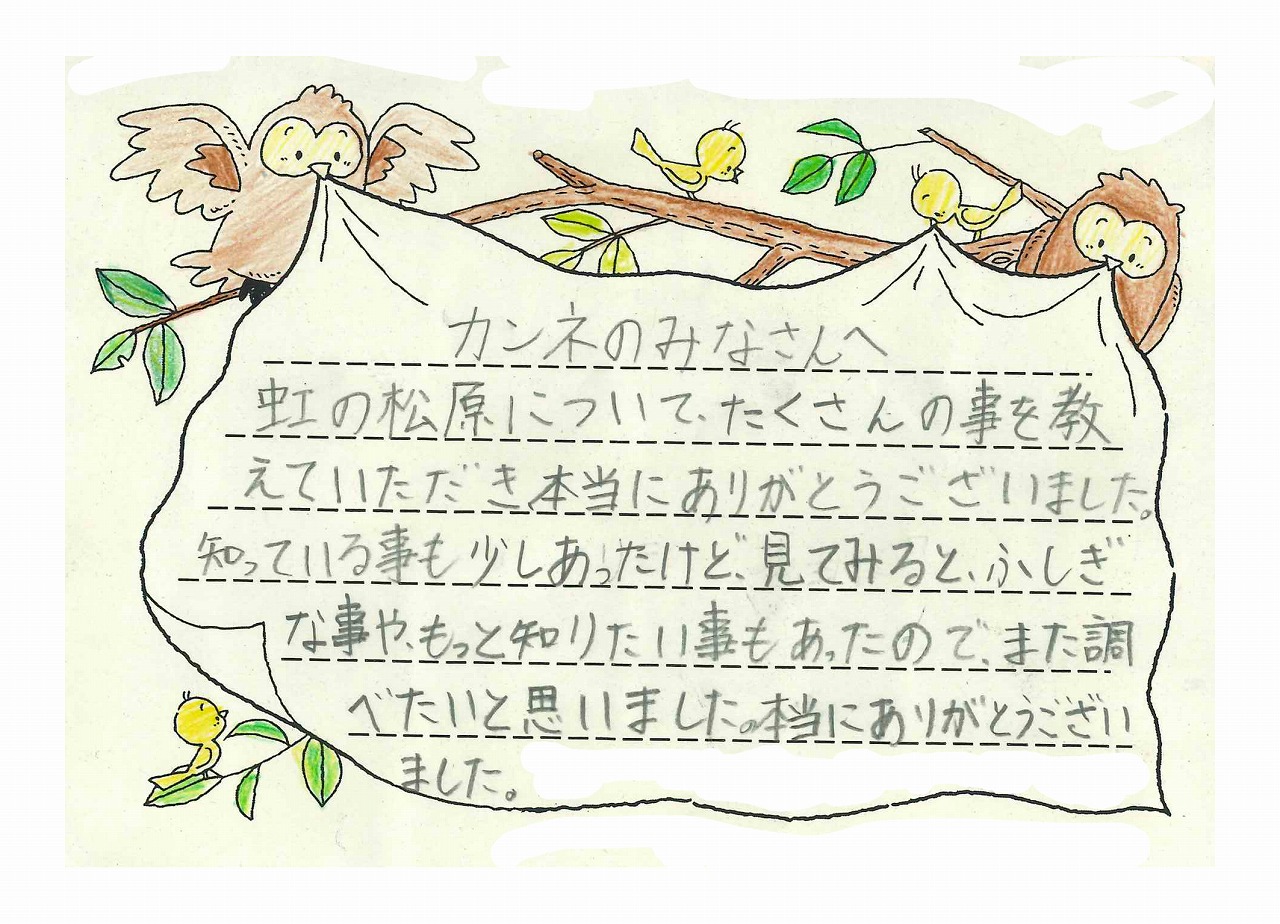 カンネのみなさんへ
虹の松原について、たくさんの事を教
えていただき本当にありがとうございました。
知っている事も少しあったけど、見てみると、ふしぎ
な事や、もっと知りたい事もあったので、また調
べたいと思いました。本当にありがとうござい
ました。